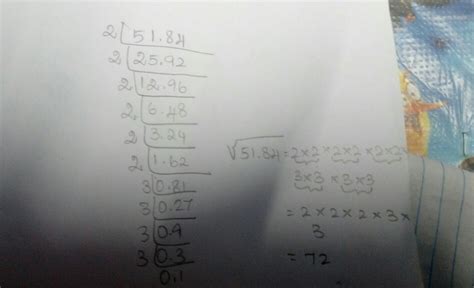 2 51.84
2 25.92
2 12.96
2 6.48
2 3.24
2 1.62
3 0.81
3 0.27
3 0.9
3 0.3
0.1
√51.84 = 2×2×2×2×2×2×
3×3×3×3
= 2×2×2×3×
3
= 72